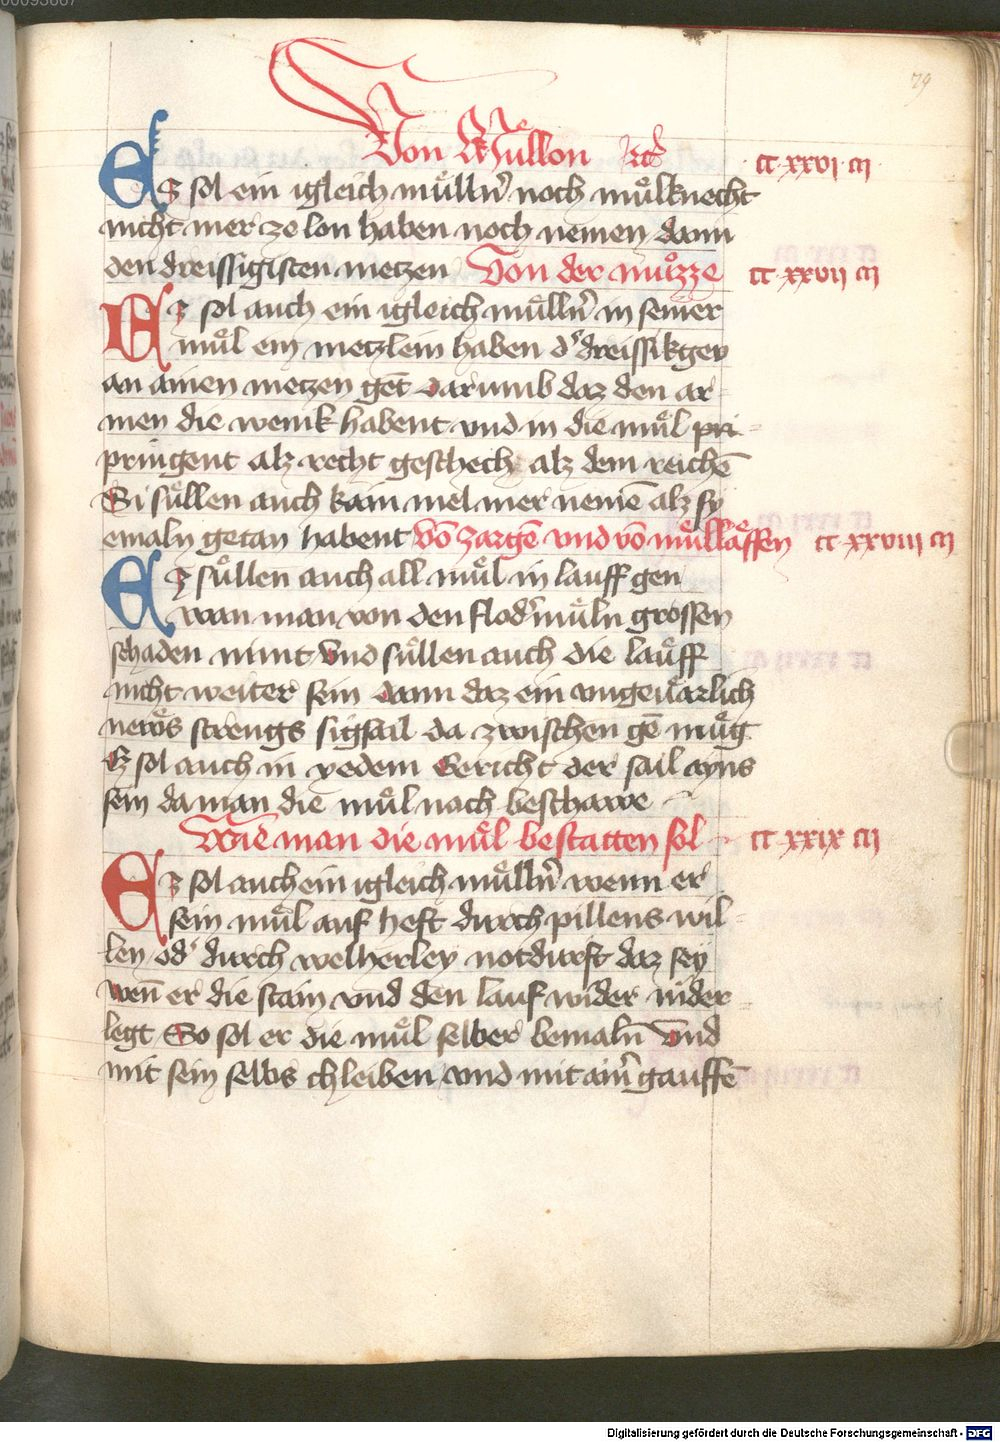 79
Von Mu̍llon Rc̄
·CC·xxvi·cij
Es sol ein igleich mu̍lln̄ noch mu̍lknecht
nicht mer ze lon haben noch nemen dann
den dreissigisten metzen Von der muͦzze CC·xxvii cij
Ez sol auch ein igleich mu̍lln̄ in seiner
mu̍l ein metzlein haben d' dreissikgey
an ainen metzen get̄ darumb daz den ar-
men die wenik habent vnd in die mu̍l pri-
pringent alz recht geschech alz dem reichē
Si su̍llen auch kain mel mer nemē alz sy
emaln getan habent Vō zargē vnd vō mu̍llaͤffen CC·xxviii cij
Ez su̍llen auch all mu̍l in lauff gen
wan man von den flod'mu̍ln grossen
schaden nimt Vnd su̍llen auch die laͤuff
nicht weiter sein dann daz ein vngeuͤarlich
newͦs strengs sigsail da zwischen gē mu̍g
Ez sol auch in yedem Gericht der sail ayns
sein da man die mu̍l nach beschawe
Wie man die mu̍l bestatten sol CC·xxix cij
Ez sol auch ein igleich mu̍lln̄ wenn er
sein mu̍l auf heft durch pillens wil-
len od' durch welherley notdurft daz sey
wen̄ er die stain vnd den lauf wider nider
legt So sol er die mu̍l selber bemaln̄ Vnd
mit sein selbs chleiben vnd mit ain' gauffē
Digitalisierung gefördert durch die Deutsche Forschungsgemeinschaft - DFG